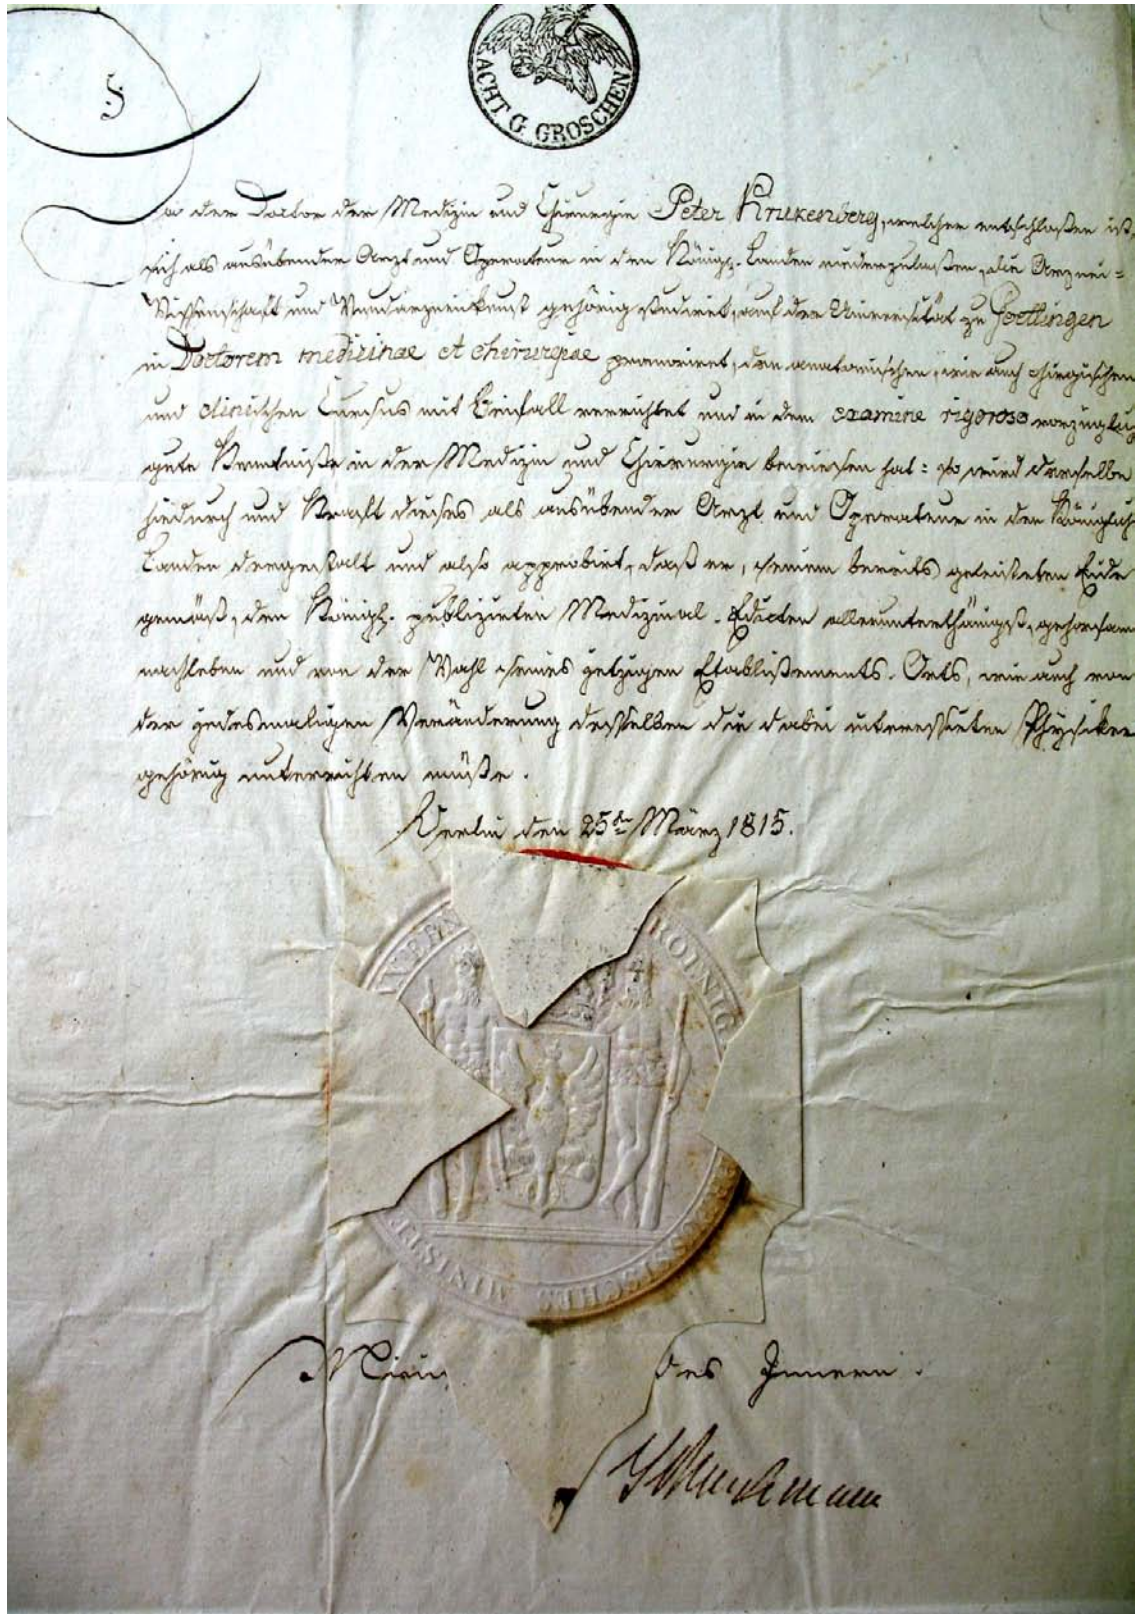 ACHT G. GROSCHEN
Da der Doctor der Medizin und Chirurgie Peter Krukenberg, welcher entschloßen ist,
sich als ausübender Arzt und Operateur in den Königl. Landen niederzulaßen, die Arznei-
Wissenschaft und Wundarzneikunst gehörig studiret, auf der Universität zu Goettingen
in Doctorem medizinae et chirurgiae promoviret, den anatomischen, wie auch chirugischen
und clinischen Cursus mit Beifall verrichtet und in dem examine rigoroso vorzüglich
gute Kenntniße in der Medizin und Chirurgie bewiesen hat: so wird derselbe
hiedurch und Kraft dieses als ausübender Arzt und Operateur in den Königlich
Landen dergestalt und also approbirt, daß er, seinem bereits geleisteten Eide
gemäß, den Königl. publizirten Medizinal-Edicten allerunterthänigst, gehorsam
nachleben und von der Wahl seines jetzigen Etablißements-Orts, wie auch von
der jedesmaligen Veränderung desselben die dabei interessirten Physiker
gehörig unterrichten müße.
Berlin den 25ten März 1815.
KOENIG
SSISCHES MINIST
INNERN
des Innern.